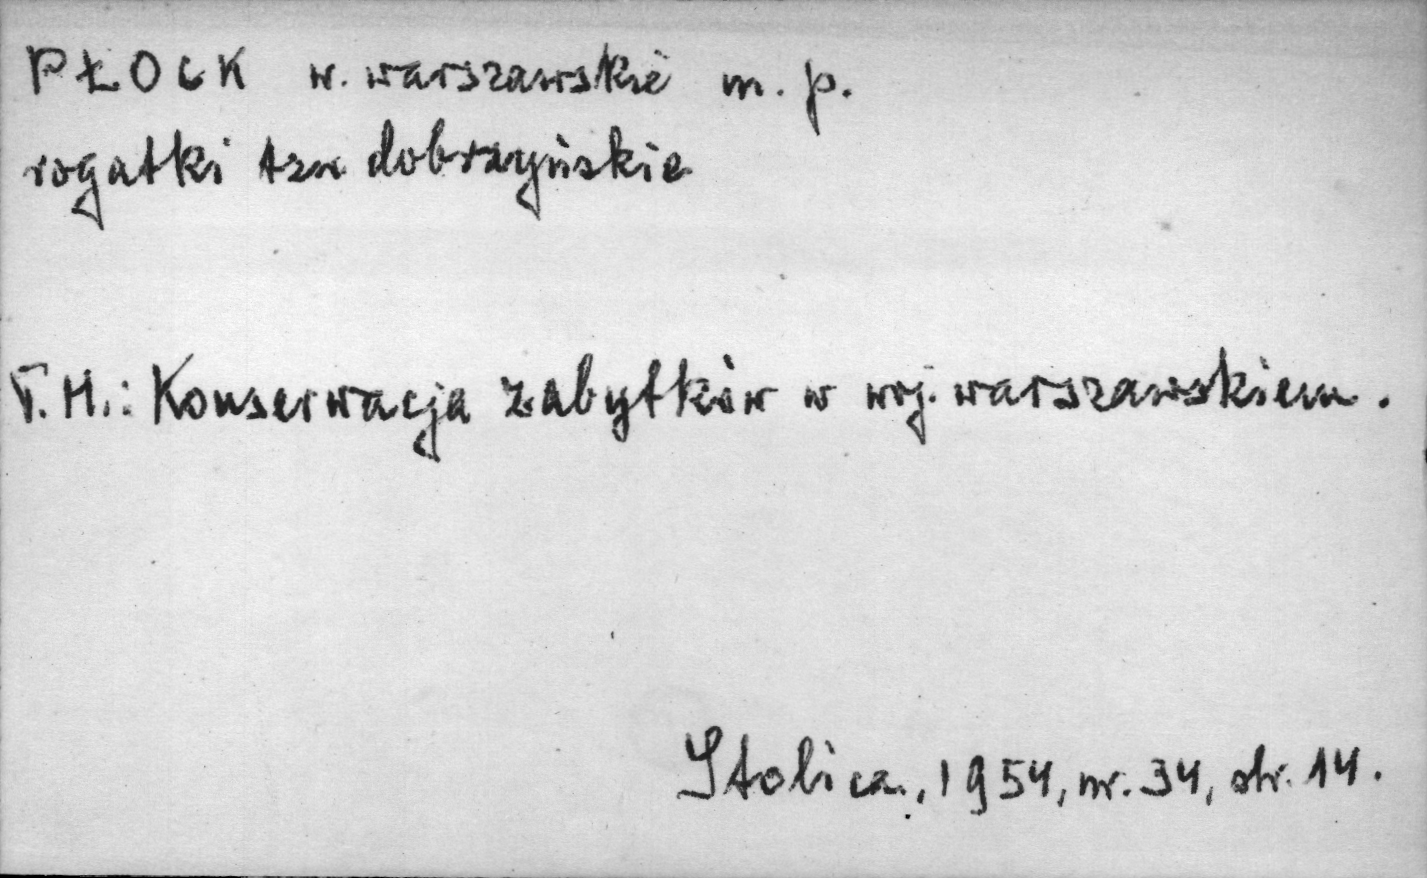 PŁOCK w. warszawskie m. p.
rogatki tzw dobrzyńskie
T. H.: Konserwacja zabytków w woj. warszawskiem.
Stolica., 1954, nr. 34, str. 14.